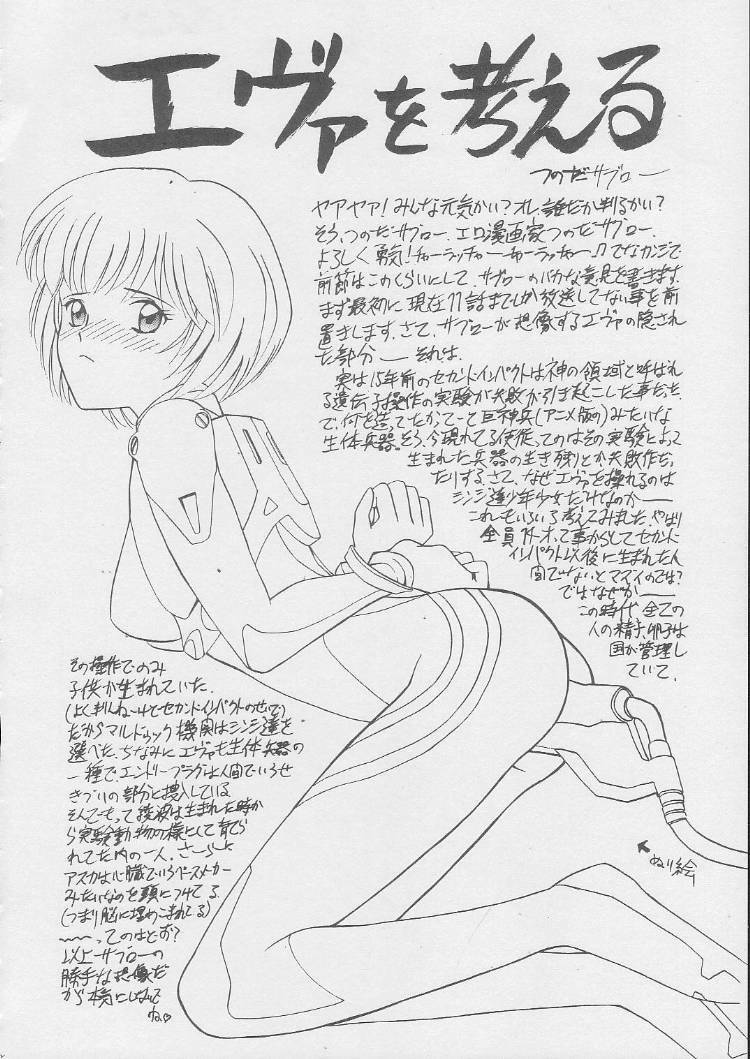 エヴァを考える
つのだサブロー
ヤアヤア！みんな元気かい？オレ誰だか判るかい？
そう、つのだサブロー、エロ漫画家つのだサブロー、
よろしく勇気！チャーラッチャーチャーラッチャー♪でなカンジで
前節はこのくらいにして、サブローのバカな意見を書きます。
まず最初に現在11話までしか放送してない事を前
置きします。さて、サブローが想像するエヴァの隠され
た部分——それは、
実は15年前のセカンドインパクトは神の領域と呼ばれ
る遺伝子操作の実験が失敗が引き起こした事だった
で、何を造ってたかってーと巨神兵(アニメ版の)みたいな
生体兵器。そう、今現れてる使徒、てのはその実験によって
生まれた兵器の生き残りとか失敗作だっ
たりする。さて、なぜエヴァを操れるのは
シンジ達少年少女だけなのか——
これもいろいろ考えてみました。やはり
全員14才、て事からしてセカンド
インパクト以後に生まれた人
間でないとマズイのでは？
ではなぜか——
この時代、全ての
人の精子、卵子は
国が管理し
ていて、
その操作でのみ
子供が生まれていた。
(よく判んねーけどセカンドインパクトのせいで)
だからマルドゥック機関はシンジ達を
選べた。ちなみにエヴァも生体兵器の
一種で、エントリープラグは人間でいうせ
きづいの部分と挿入している
そんでもって綾波は生まれた時か
ら実験動物の様にして育てら
れてた内の一人。さーらに
アスカは心臓でいうペースメーカー
みたいなのを頭につけてる
(つまり脳に埋めこまれてる)
〜〜ってのはどお？
以上サブローの
勝手な想像だ
が本気にしないで
ね♡
ぬり絵